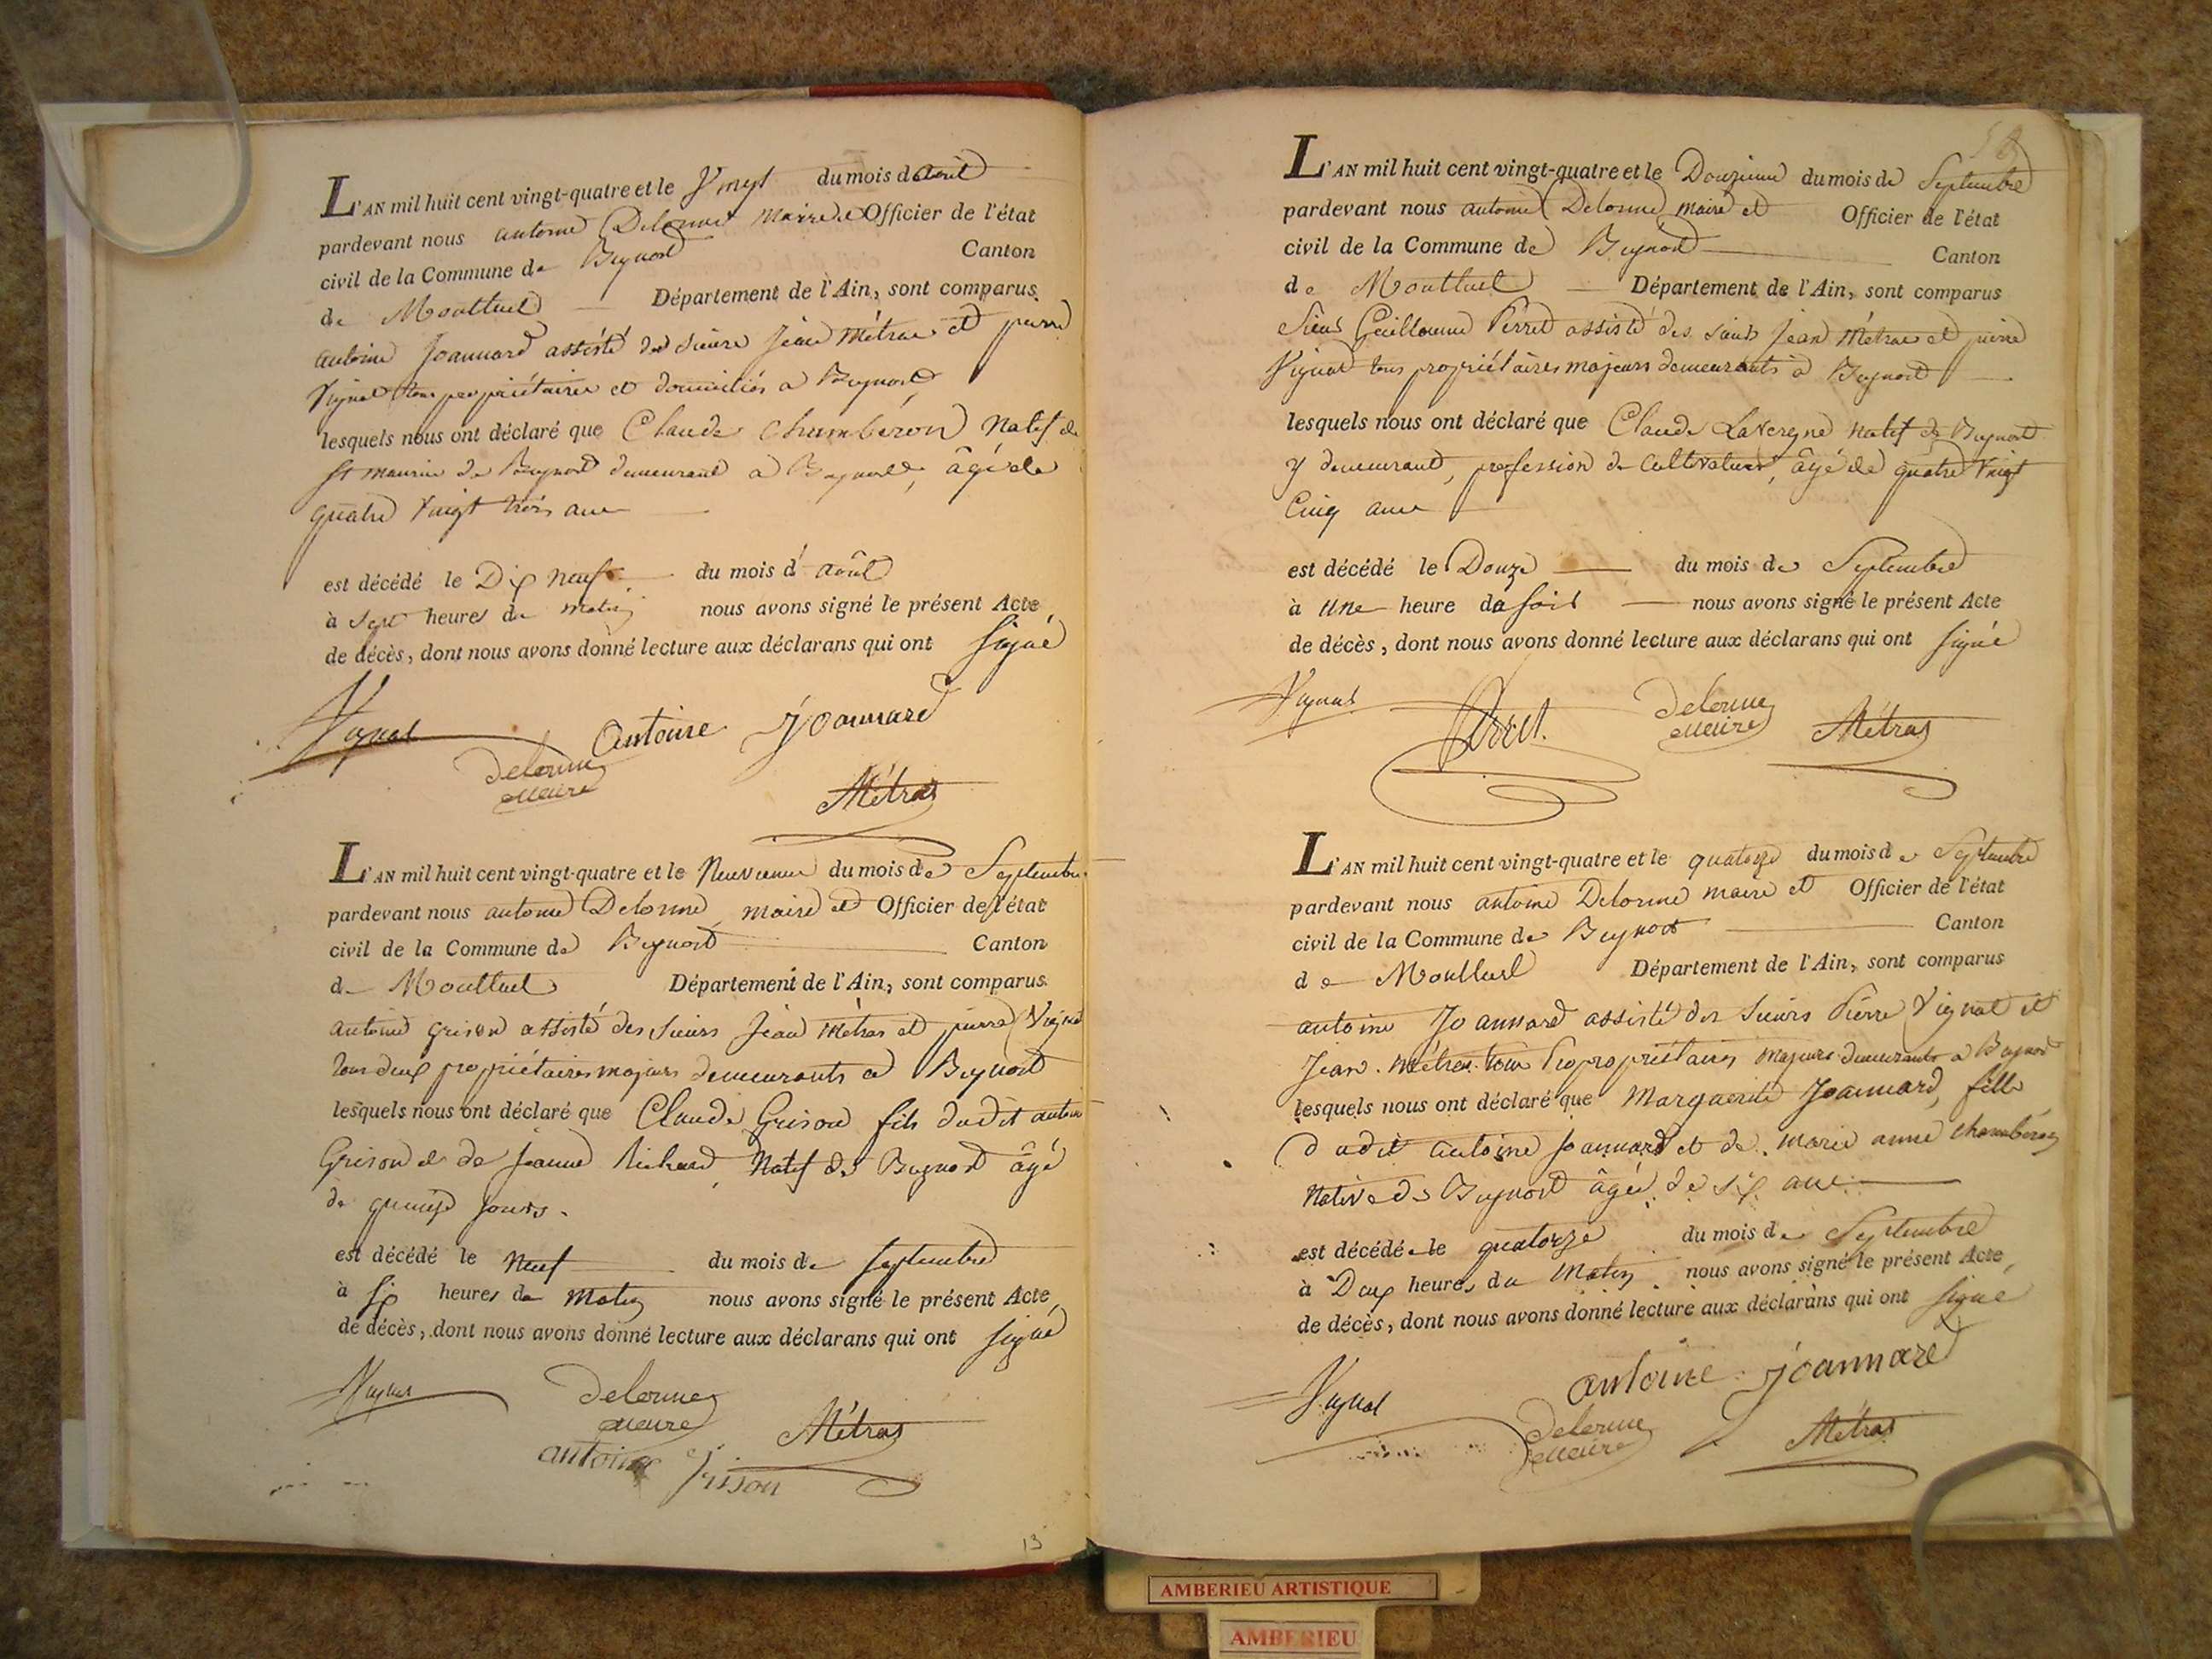 L'AN mil huit cent vingt-quatre et le Vingt du mois d'aout
pardevant nous antoine Delorme maire et Officier de l'état
civil de la Commune de Beynost Canton
de Montluel Département de l'Ain, sont comparus
antoine Joannard assisté des sieurs Jean Métras et pierre
Vignat tous propriétaires et domiciliés a Beynost,
lesquels nous ont déclaré que Claude Chambéron Natif de
St maurice de Beynost demeurant a Beynost, âgé de
quatre Vingt trois ans
est décédé le Dix neuf du mois d'août
à Sept heures du matin nous avons signé le présent Acte
de décès, dont nous avons donné lecture aux déclarans qui ont signé
Vignat Antoine Joannard
Delorme
maire
Métras
L'AN mil huit cent vingt-quatre et le Neuvieme du mois de Septembre
pardevant nous antoine Delorme maire et Officier de l'état
civil de la Commune de Beynost Canton
de Montluel Département de l'Ain, sont comparus
antoine Grison assisté des sieurs Jean Métras et pierre Vignat
tous deux propriétaires majeurs demeurants a Beynost
lesquels nous ont déclaré que Claude Grison fils dudit antoine
Grison et de Jeanne Richard, Natif de Beynost âgé
de quinze jours.
est décédé le neuf du mois de septembre
à six heures du matin nous avons signé le présent Acte
de décès, dont nous avons donné lecture aux déclarans qui ont signé
Vignat Delorme
maire Métras
antoine Grison
13
L'AN mil huit cent vingt-quatre et le Douzieme du mois de Septembre
pardevant nous antoine Delorme maire et Officier de l'état
civil de la Commune de Beynost Canton
de Montluel Département de l'Ain, sont comparus
Sieur Guillaume Perret assisté des sieurs Jean Métras et pierre
Vignat tous propriétaires majeurs demeurants a Beynost
lesquels nous ont déclaré que Claude Lavergne natif de Beynost
y demeurant, profession de Cultivateur, âgé de quatre Vingt
Cinq ans
est décédé le Douze du mois de Septembre
à une heure du soir nous avons signé le présent Acte
de décès, dont nous avons donné lecture aux déclarans qui ont signé
Vignat Perret. Delorme
maire Métras
L'AN mil huit cent vingt-quatre et le quatorze du mois de Septembre
pardevant nous antoine Delorme maire et Officier de l'état
civil de la Commune de Beynost Canton
de Montluel Département de l'Ain, sont comparus
antoine Joannard assisté des sieurs Pierre Vignat et
Jean Métras tous Propropriétaires majeurs demeurants a Beynost
lesquels nous ont déclaré que Marguerite Joannard, fille
dudit antoine Joannard et de marie anne Chambéron
Native de Beynost âgée de six ans
est décédée le quatorze du mois de Septembre
à Deux heures du Matin nous avons signé le présent Acte
de décès, dont nous avons donné lecture aux déclarans qui ont signé
Vignat antoine Joannard
Delorme
maire Métras
AMBERIEU ARTISTIQUE
AMBERIEU